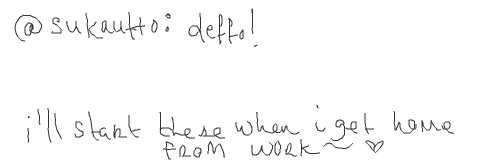 @sukautto: deffo!
i'll start these when i get home
from work~ ♡